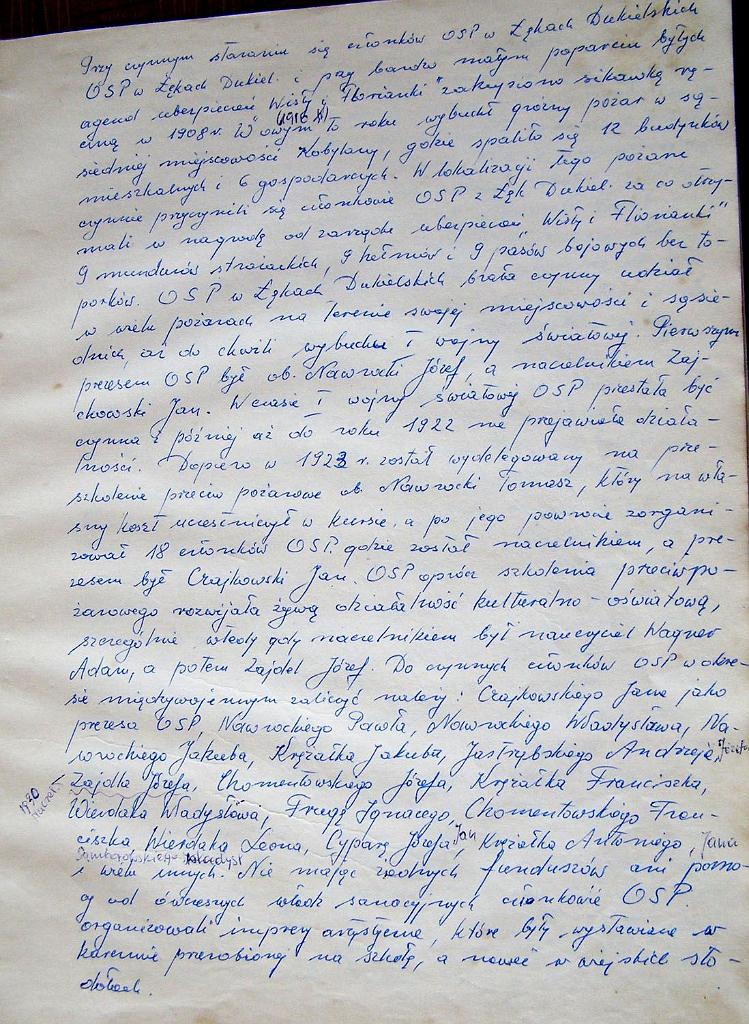 Przy czynnym staraniu się członków OSP w Łękach Dukielskich
OSP w Łękach Dukiel. i przy bardzo małym poparciu byłych
agend ubezpieczeń "Wisły i Florianki" zakupiono sikawkę rę-
czną w 1908 r. W owym to roku wybuchł groźny pożar w są-
(1916 r)
siedniej miejscowości Kobylany, gdzie spaliło się 12 budynków
mieszkalnych i 6 gospodarczych. W lokalizacji tego pożaru
czynnie przyczynili się członkowie OSP z Łęk Dukiel. za co otrzy-
mali w nagrodę od zarządu ubezpieczeń "Wisły i Florianki"
9 mundurów strażackich, 9 hełmów i 9 pasów bojowych bez to-
porków. OSP w Łękach Dukielskich brała czynny udział
w wielu pożarach na terenie swojej miejscowości i sąsie-
dnich, aż do chwili wybuchu I wojny światowej. Pierwszym
prezesem OSP był ob. Nawrocki Józef, a naczelnikiem Zaj-
chowski Jan. W czasie I wojny światowej OSP przestała być
czynna i później aż do roku 1922 nie przejawiała działa-
lności. Dopiero w 1923 r. został wydelegowany na prze-
szkolenie przeciw pożarowe ob. Nawrocki Tomasz, który na wła-
sny koszt uczestniczył w kursie, a po jego powrocie zorgani-
zował 18 członków OSP. gdzie został naczelnikiem, a pre-
zesem był Czajkowski Jan. OSP oprócz szkolenia przeciwpo-
żarowego rozwijała żywą działalność kulturalno-oświatową,
szczególnie wtedy gdy naczelnikiem był nauczyciel Wagner
Adam, a potem Zajdel Józef. Do czynnych członków OSP w okre-
sie międzywojennym zaliczyć należy: Czajkowskiego Jana jako
prezesa OSP, Nawrockiego Pawła, Nawrockiego Władysława, Na-
wrockiego Jakuba, Kręžałka Jakuba, Jastrybskiego Andrzeja, Józefa
1930 naczel.
Zajdla Józefa, Chomentowskiego Józefa, Krężałka Franciszka,
Wierdaka Władysława, Fregę Ignacego, Chomentowskiego Fran-
ciszka, Wierdaka Leona, Cyparę Józefa, Jan Krężałko Antoniego, Jana
Samborowskiego Władysł
i wielu innych. Nie mając żadnych funduszów ani pomo-
cy od ówczesnych władz sanacyjnych członkowie OSP.
organizowali imprezy artystyczne, które były wystawiane w
karczmie przerobionej na szkołę, a nawet w wiejskich sto-
dołach.